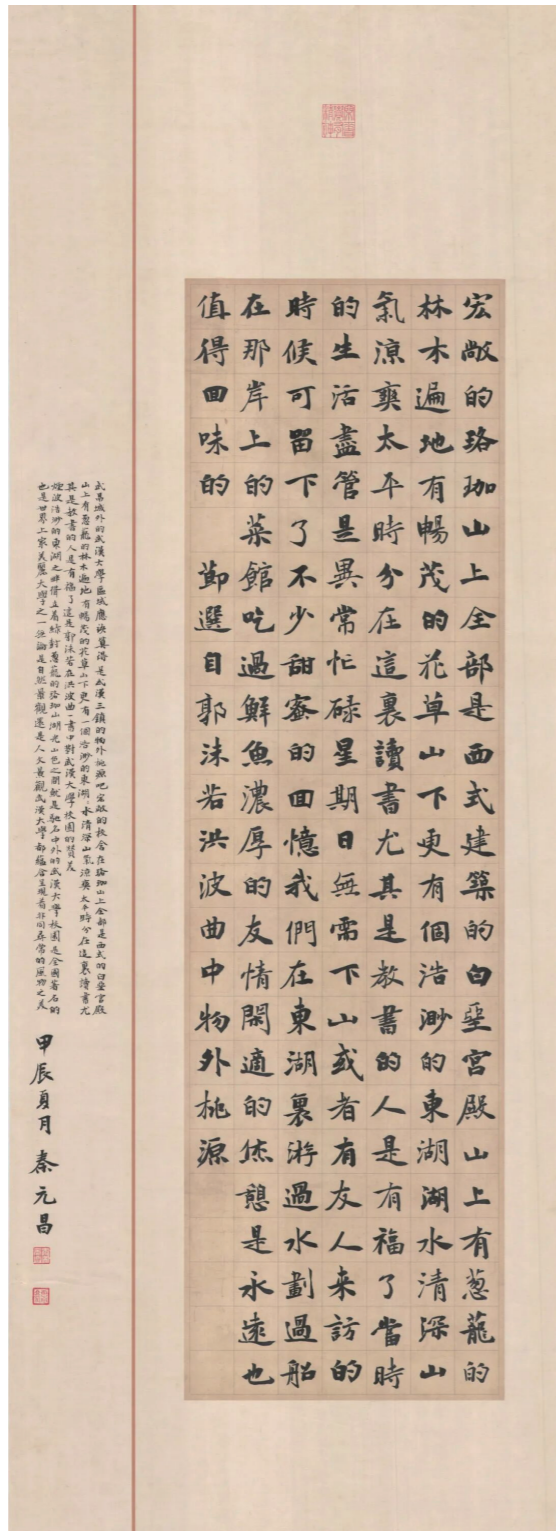 宏敞的珞珈山上全部是面式建築的白堊宮殿山上有葱蘢的
林木遍地有暢茂的花草山下更有個浩渺的東湖湖水清深山
氣涼爽太平時分在這裏讀書尤其是教書的人是有福了當時
的生活盡管是異常忙碌星期日無需下山或者有友人来訪的
時候可留下了不少甜蜜的回憶我們在東湖裏游過水劃過船
在那岸上的菜館吃過鮮魚濃厚的友情閑適的休憩是永遠也
值得回味的 節選自郭沫若洪波曲中物外桃源
武昌城外的武漢大學區域應該算得是武漢三鎮的物外桃源吧宏敞的校舍在珞珈山上全部是西式的白堊宮殿
山上有葱蘢的林木遍地有暢茂的花草山下更有一個浩渺的東湖水清深山氣涼爽太平時分在這裏讀書尤
其是教書的人是有福了這是郭沫若在洪波曲一書中對武漢大學校園的贊美
煙波浩渺的東湖之畔立着葱蘢的珞珈山湖光山色之間就是馳名中外的武漢大學校園是全國著名的
也是世界上最美麗大學之一無論是自然景觀還是人文景觀武漢大學都蘊含呈現着非同尋常的風物之美
甲辰夏月秦元昌